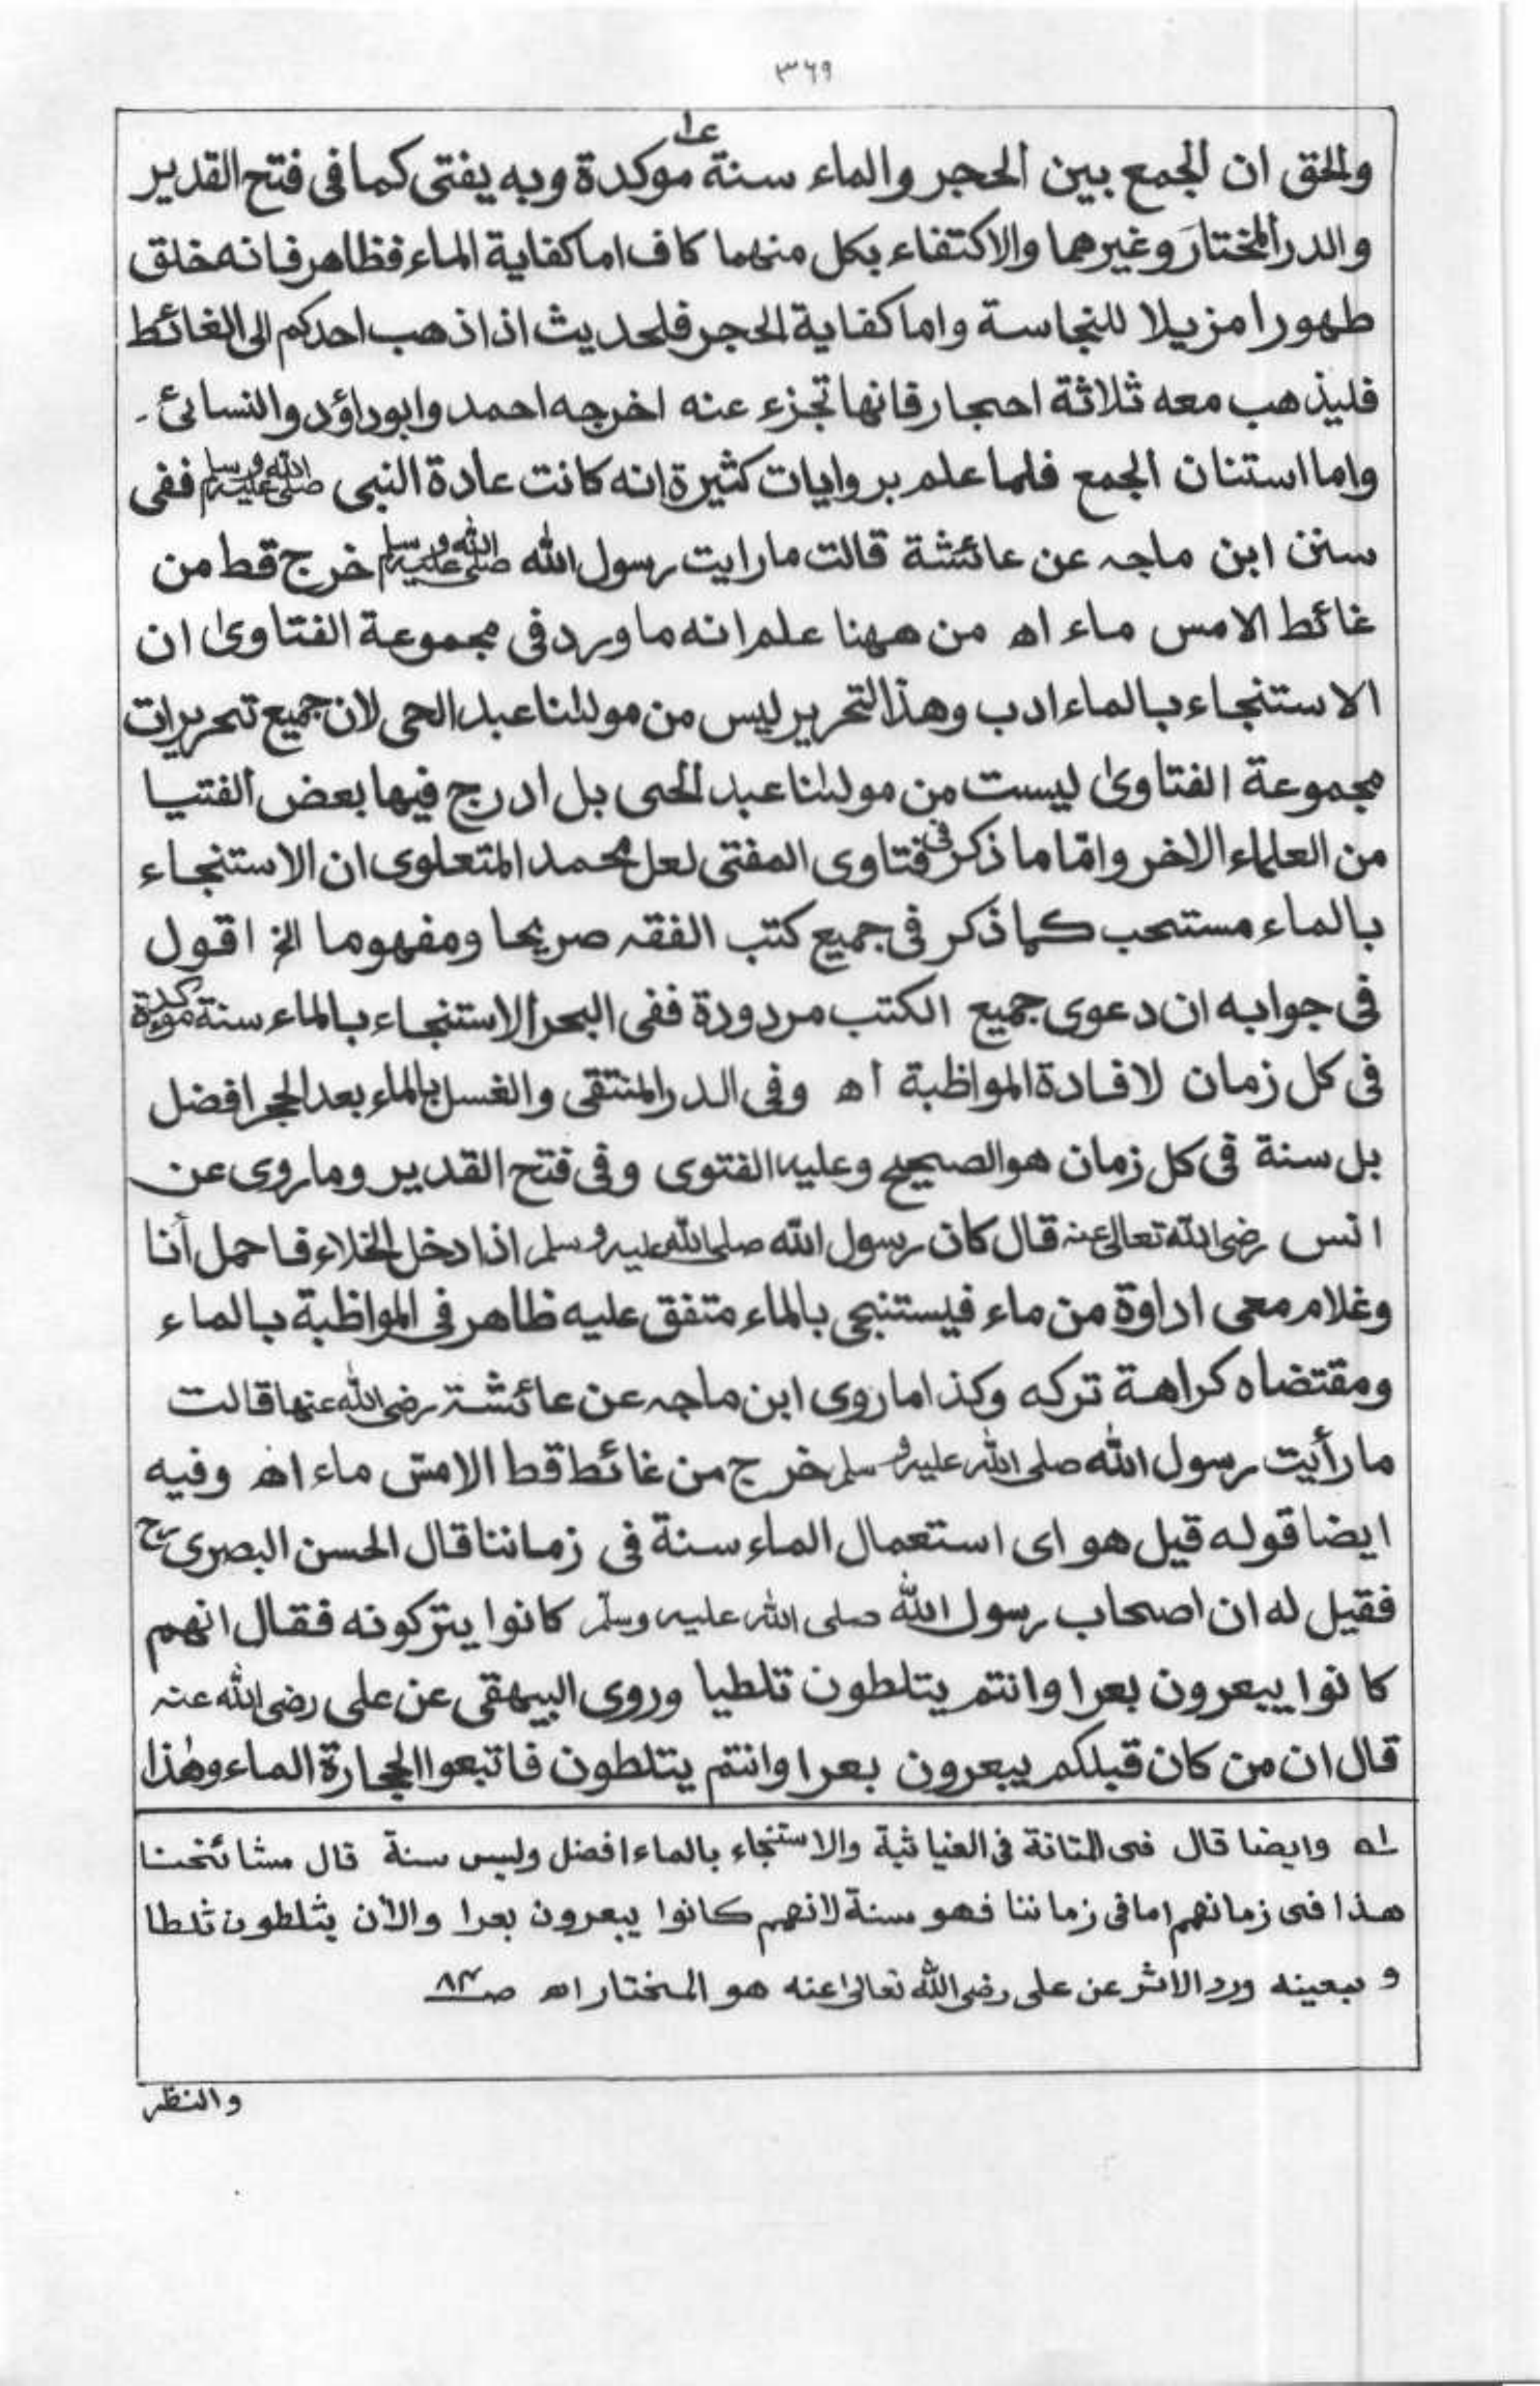 ٣٦٩
والحق ان الجمع بين الحجر والماء سنة موكدة وبه يفتى كما فى فتح القدير
والدر المختار وغيرهما والاكتفاء بكل منهما كاف اما كفاية الماء فظاهر فانه خلق
طهورا مزيلا للنجاسة واما كفاية الحجر فلحديث اذا ذهب احدكم الى الغائط
فليذهب معه ثلاثة احجار فانها تجزء عنه اخرجه احمد وابوداؤد والنسائى۔
واما استنان الجمع فلما علم بروايات كثيرة انه كانت عادة النبى صلى الله عليه وسلم ففى
سنن ابن ماجه عن عائشة قالت ما رايت رسول الله صلى الله عليه وسلم خرج قط من
غائط الا مس ماء اھ من ههنا علم انه ما ورد فى مجموعة الفتاوىٰ ان
الاستنجاء بالماء ادب وهذا التحرير ليس من مولٰنا عبد الحى لان جميع تحريرات
مجموعة الفتاوىٰ ليست من مولٰنا عبد الحى بل ادرج فيها بعض الفتيا
من العلماء الاخر وامّا ما ذكر فى فتاوى المفتى لعل محمد المتعلوى ان الاستنجاء
بالماء مستحب كما ذكر فى جميع كتب الفقه صريحا ومفهوما الخ اقول
فى جوابه ان دعوى جميع الكتب مردودة ففى البحر الاستنجاء بالماء سنة موكدة
فى كل زمان لافادة المواظبة اھ وفى الدر المنتقى والغسل بالماء بعد الحجر افضل
بل سنة فى كل زمان هو الصحيح وعليه الفتوى وفى فتح القدير وما روى عن
انس رضى الله تعالى عنه قال كان رسول الله صلى الله عليه وسلم اذا دخل الخلاء فاحمل أنا
وغلام معى اداوة من ماء فيستنجى بالماء متفق عليه ظاهر فى المواظبة بالماء
ومقتضاه كراهة تركه وكذا ما روى ابن ماجه عن عائشة رضى الله عنها قالت
ما رأيت رسول الله صلى الله عليه وسلم خرج من غائط قط الا مس ماء اھ وفيه
ايضا قوله قيل هو اى استعمال الماء سنة فى زماننا قال الحسن البصرى رح
فقيل له ان اصحاب رسول الله صلى الله عليه وسلم كانوا يتركونه فقال انهم
كانوا يبعرون بعرا وانتم يتلطون تلطيا وروى البيهقى عن على رضى الله عنه
قال ان من كان قبلكم يبعرون بعرا وانتم يتلطون فاتبعوا الحجارة الماء وهٰذا
له وايضا قال فى المتانة فى الغياثية والاستنجاء بالماء افضل وليس سنة قال مشائخنا
هذا فى زمانهم اما فى زماننا فهو سنة لانهم كانوا يبعرون بعرا والأن يثلطون ثلطا
و بعينه ورد الاثر عن على رضى الله تعالىٰ عنه هو المختار اھ صـ٨٢
والنظر